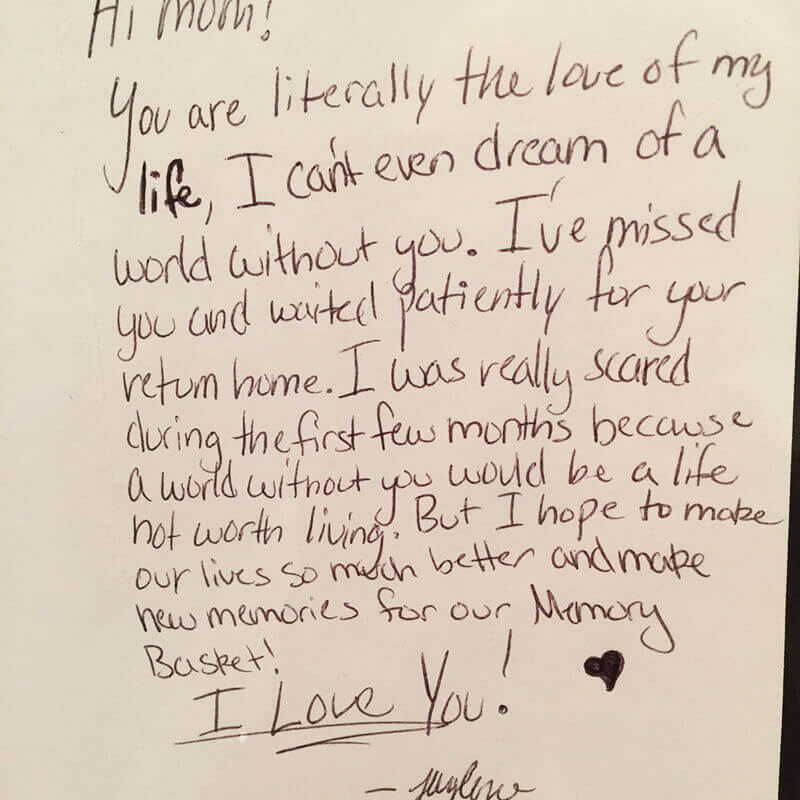 Hi Mom!
You are literally the love of my
life, I can't even dream of a
world without you. I've missed
you and waited patiently for your
return home. I was really scared
during the first few months because
a world without you would be a life
not worth living. But I hope to make
our lives so much better and make
new memories for our Memory
Basket!
I Love You!